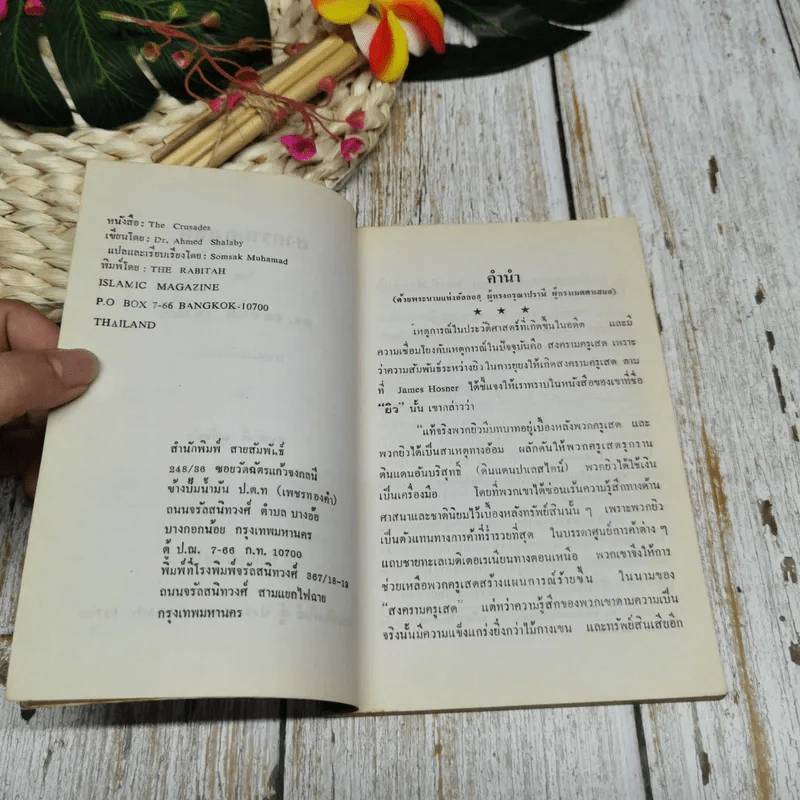 หนังสือ: The Crusades
เขียนโดย: Dr. Ahmed Shalaby
แปลและเรียบเรียงโดย: Somsak Muhamad
พิมพ์โดย: THE RABITAH
ISLAMIC MAGAZINE
P.O BOX 7-66 BANGKOK-10700
THAILAND
สำนักพิมพ์ สายสัมพันธ์
248/36 ซอยวัดฉัตรแก้วจงกลนี
ข้างปั๊มน้ำมัน ป.ต.ท (เพชรทองคำ)
ถนนจรัลสนิทวงศ์ ตำบล บางอ้อ
บางกอกน้อย กรุงเทพมหานคร
ตู้ ป.ณ. 7-66 ก.ท. 10700
พิมพ์ที่โรงพิมพ์จรัลสนิทวงศ์ 367/18-19
ถนนจรัลสนิทวงศ์ สามแยกไฟฉาย
กรุงเทพมหานคร
คำนำ
(ด้วยพระนามแห่งอัลลอฮฺ ผู้ทรงกรุณาปรานี ผู้ทรงเมตตาเสมอ)
★ ★ ★
เหตุการณ์ในประวัติศาสตร์ที่เกิดขึ้นในอดีต และมี
ความเชื่อมโยงกับเหตุการณ์ในปัจจุบันคือ สงครามครูเสด เพราะ
ว่าความสัมพันธ์ระหว่างยิวในการยุยงให้เกิดสงครามครูเสด ตาม
ที่ James Hosner ได้ชี้แจงให้เราทราบในหนังสือของเขาที่ชื่อ
"ยิว" นั้น เขากล่าวว่า
"แท้จริงพวกยิวมีบทบาทอยู่เบื้องหลังพวกครูเสด และ
พวกยิวได้เป็นสาเหตุทางอ้อม ผลักดันให้พวกครูเสดรุกราน
ดินแดนอันบริสุทธิ์ (ดินแดนปาเลสไตน์) พวกยิวได้ใช้เงิน
เป็นเครื่องมือ โดยที่พวกเขาได้ซ่อนเร้นความรู้สึกทางด้าน
ศาสนาและชาตินิยมไว้เบื้องหลังทรัพย์สินนั้น ๆ เพราะพวกยิว
เป็นตัวแทนทางการค้าที่ร่ำรวยที่สุด ในบรรดาศูนย์การค้าต่าง ๆ
แถบชายทะเลเมดิเตอเรเนียนทางตอนเหนือ พวกเขาจึงให้การ
ช่วยเหลือพวกครูเสดสร้างแผนการณ์ร้ายขึ้น ในนามของ
"สงครามครูเสด" แต่ทว่าความรู้สึกของพวกเขาตามความเป็น
จริงนั้นมีความแข็งแกร่งยิ่งกว่าไม้กางเขน และทรัพย์สินเสียอีก